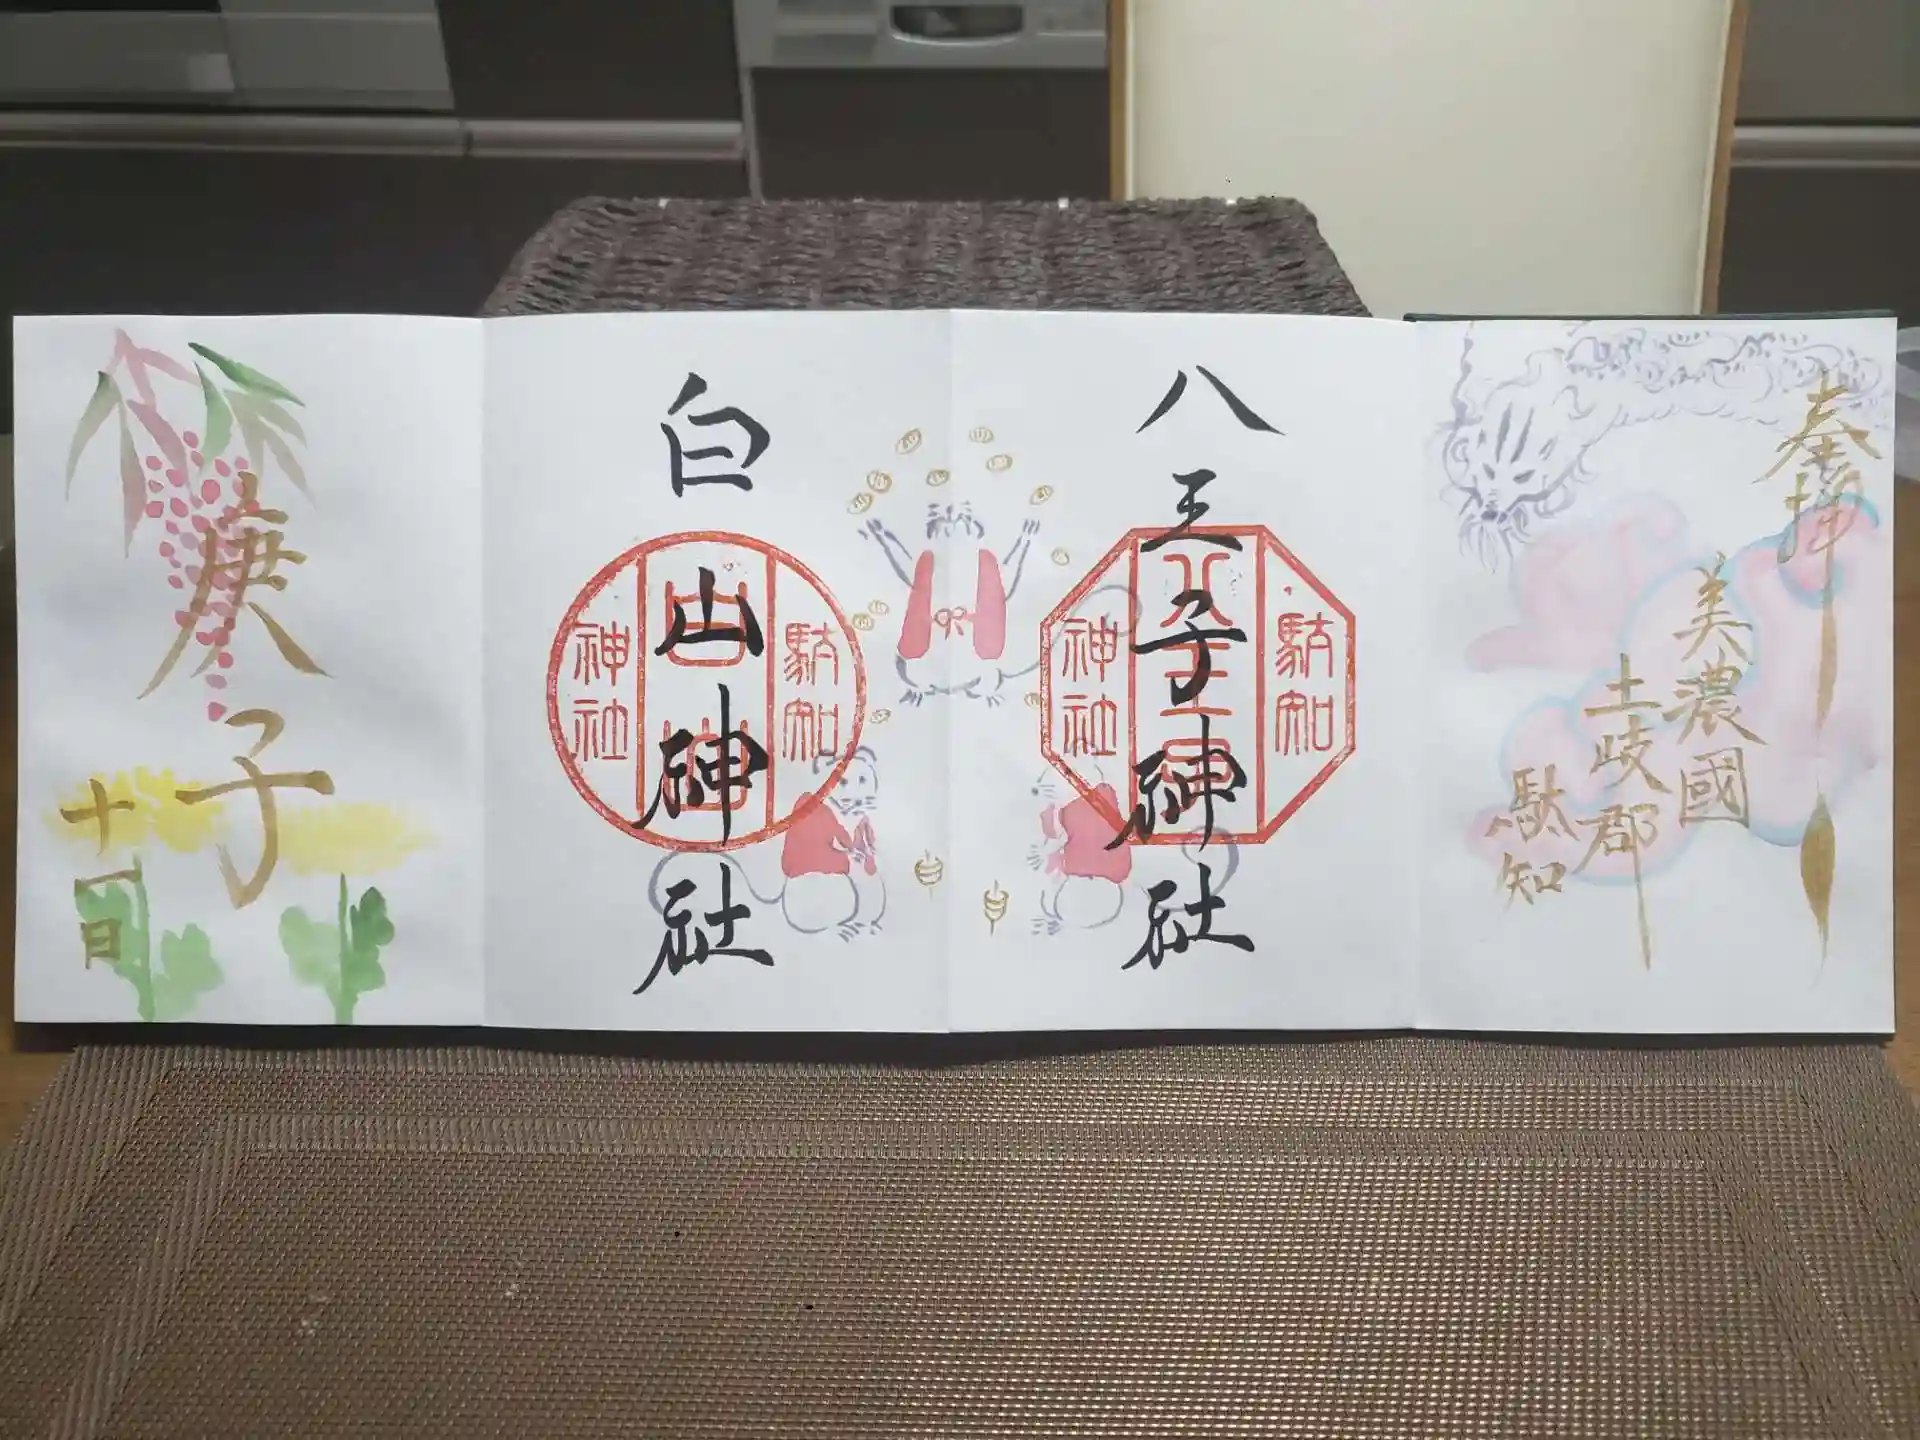 奉拝
美濃國
土岐郡
駄知
八王子神社
駄知
神社
白山神社
駄知
白山
神社
庚子
十一日